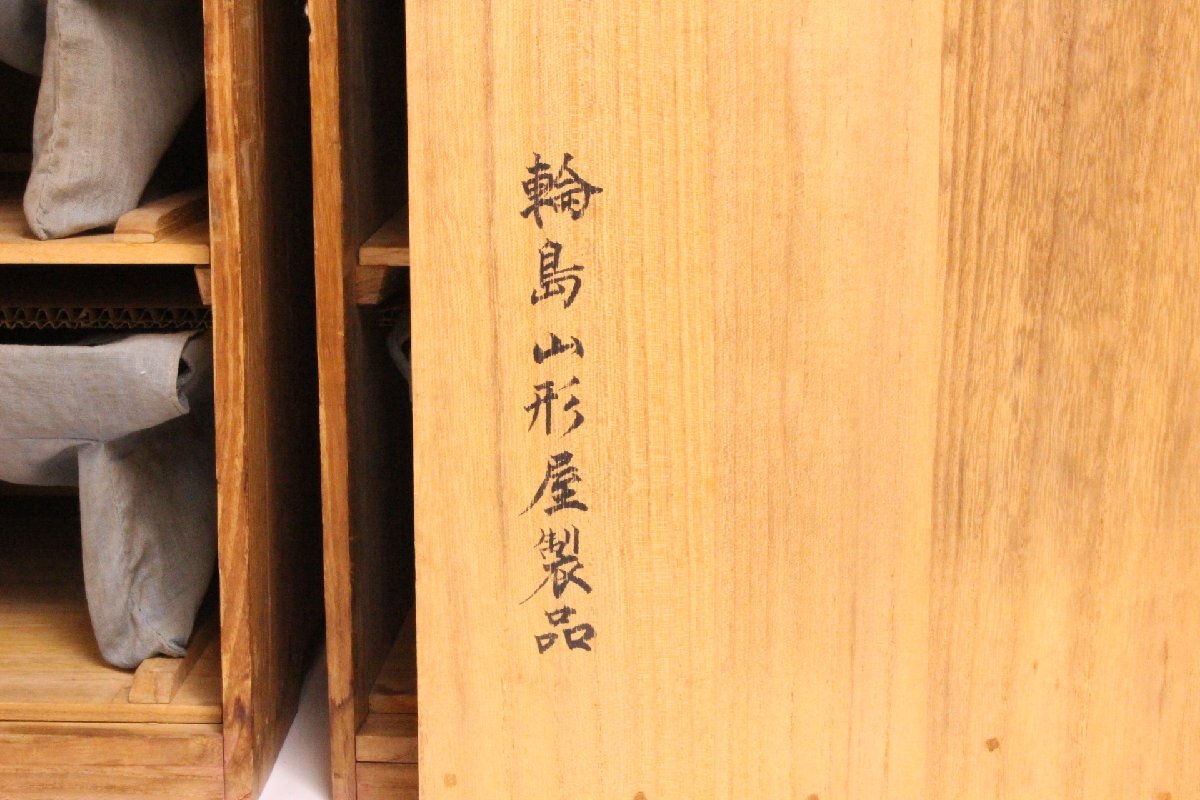 輪島山形屋製品